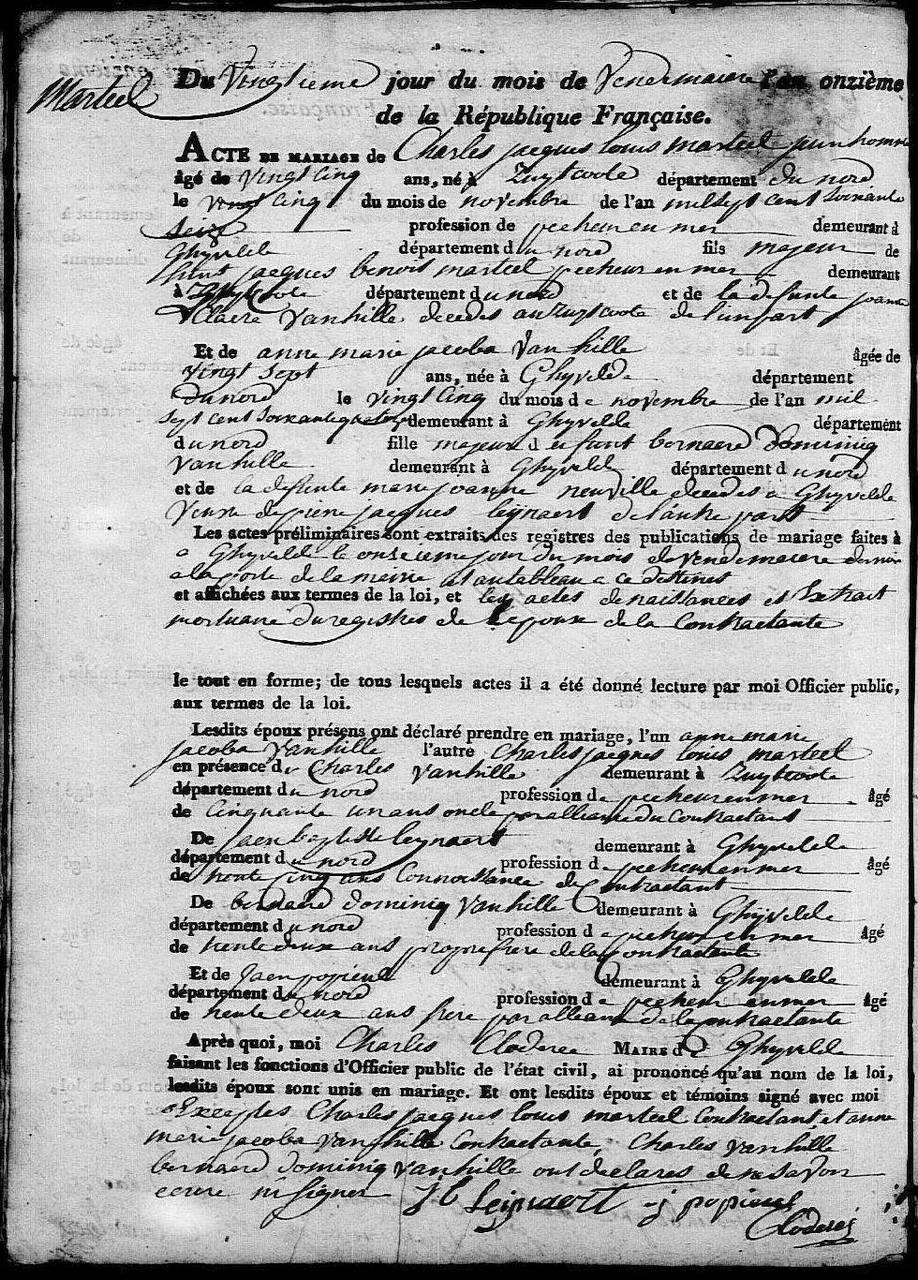 Marteel
Du Vingtieme jour du mois de Venermaiere l'an onzième
de la République Française.
ACTE DE MARIAGE de Charles jacques louis marteel jeun homme
âgé de vingt cinq ans, né à Zuytcoote département du nord
le vingt cinq du mois de novembre de l'an mil sept cent soixante
seize profession de pecheur en mer demeurant à
Ghyvelde département du nord fils majeur de
jacques benois marteel pecheur en mer demeurant
à Zuytcoote département du nord et de la defunte joanne
Claere Vanhille decedes au Zuytcoote de l'un part
Et de anne marie jacoba Van hille âgée de
vingt sept ans, née à Ghyvelde département
du nord le vingt cinq du mois de novembre de l'an mil
sept cent soixante quatorze demeurant à Ghyvelde département
du nord fille majeur d bernaerd Dominicq
Vanhille demeurant à Ghyvelde département du nord
et de la defunte marie joanne neuville decedes a Ghyvelde
Veuve de pierre jacques leynaert de l'autre part
Les actes préliminaires sont extraits des registres des publications de mariage faites à
a Ghyvelde le onzieme jour du mois de vendemaiere
a la porte de la meirie et au tableau a ce destines
et affichées aux termes de la loi, et les actes de naissances et Extrait
mortuaire du registres de l'epoux de la Contractante
le tout en forme; de tous lesquels actes il a été donné lecture par moi Officier public,
aux termes de la loi.
Lesdits époux présens ont déclaré prendre en mariage, l'un anne marie
jacoba Vanhille l'autre Charles jacques louis marteel
en présence de Charles Vanhille demeurant à Zuytcoote
département du nord profession de pecheur en mer âgé
de Cinquante un ans oncle par alliance du Contractant
De Jaen baptiste leynaert demeurant à Ghyvelde
département du nord profession de pecheur en mer âgé
de trente Cinq ans Connoissance de Contractant
De bernaerd dominicq Vanhille demeurant à Ghyvelde
département du nord profession de pecheur en mer âgé
de trente deux ans propre frere de la Contractante
Et de Jaen popieul demeurant à Ghyvelde
département du nord profession de pecheur en mer âgé
de trente deux ans frere par alliance de la Contractante
Après quoi, moi Charles Cloderee MAIRE de Ghyvelde
faisant les fonctions d'Officier public de l'état civil, ai prononcé qu'au nom de la loi,
lesdits époux sont unis en mariage. Et ont lesdits époux et témoins signé avec moi
Exceptes Charles jacques louis marteel Contractant et anne
marie jacoba Vanhille Contractante, Charles Vanhille
bernaerd dominicq Vanhille ont declares de ne savoir
ecrire ni signer J b Leijnaert j popieul
Cloderee